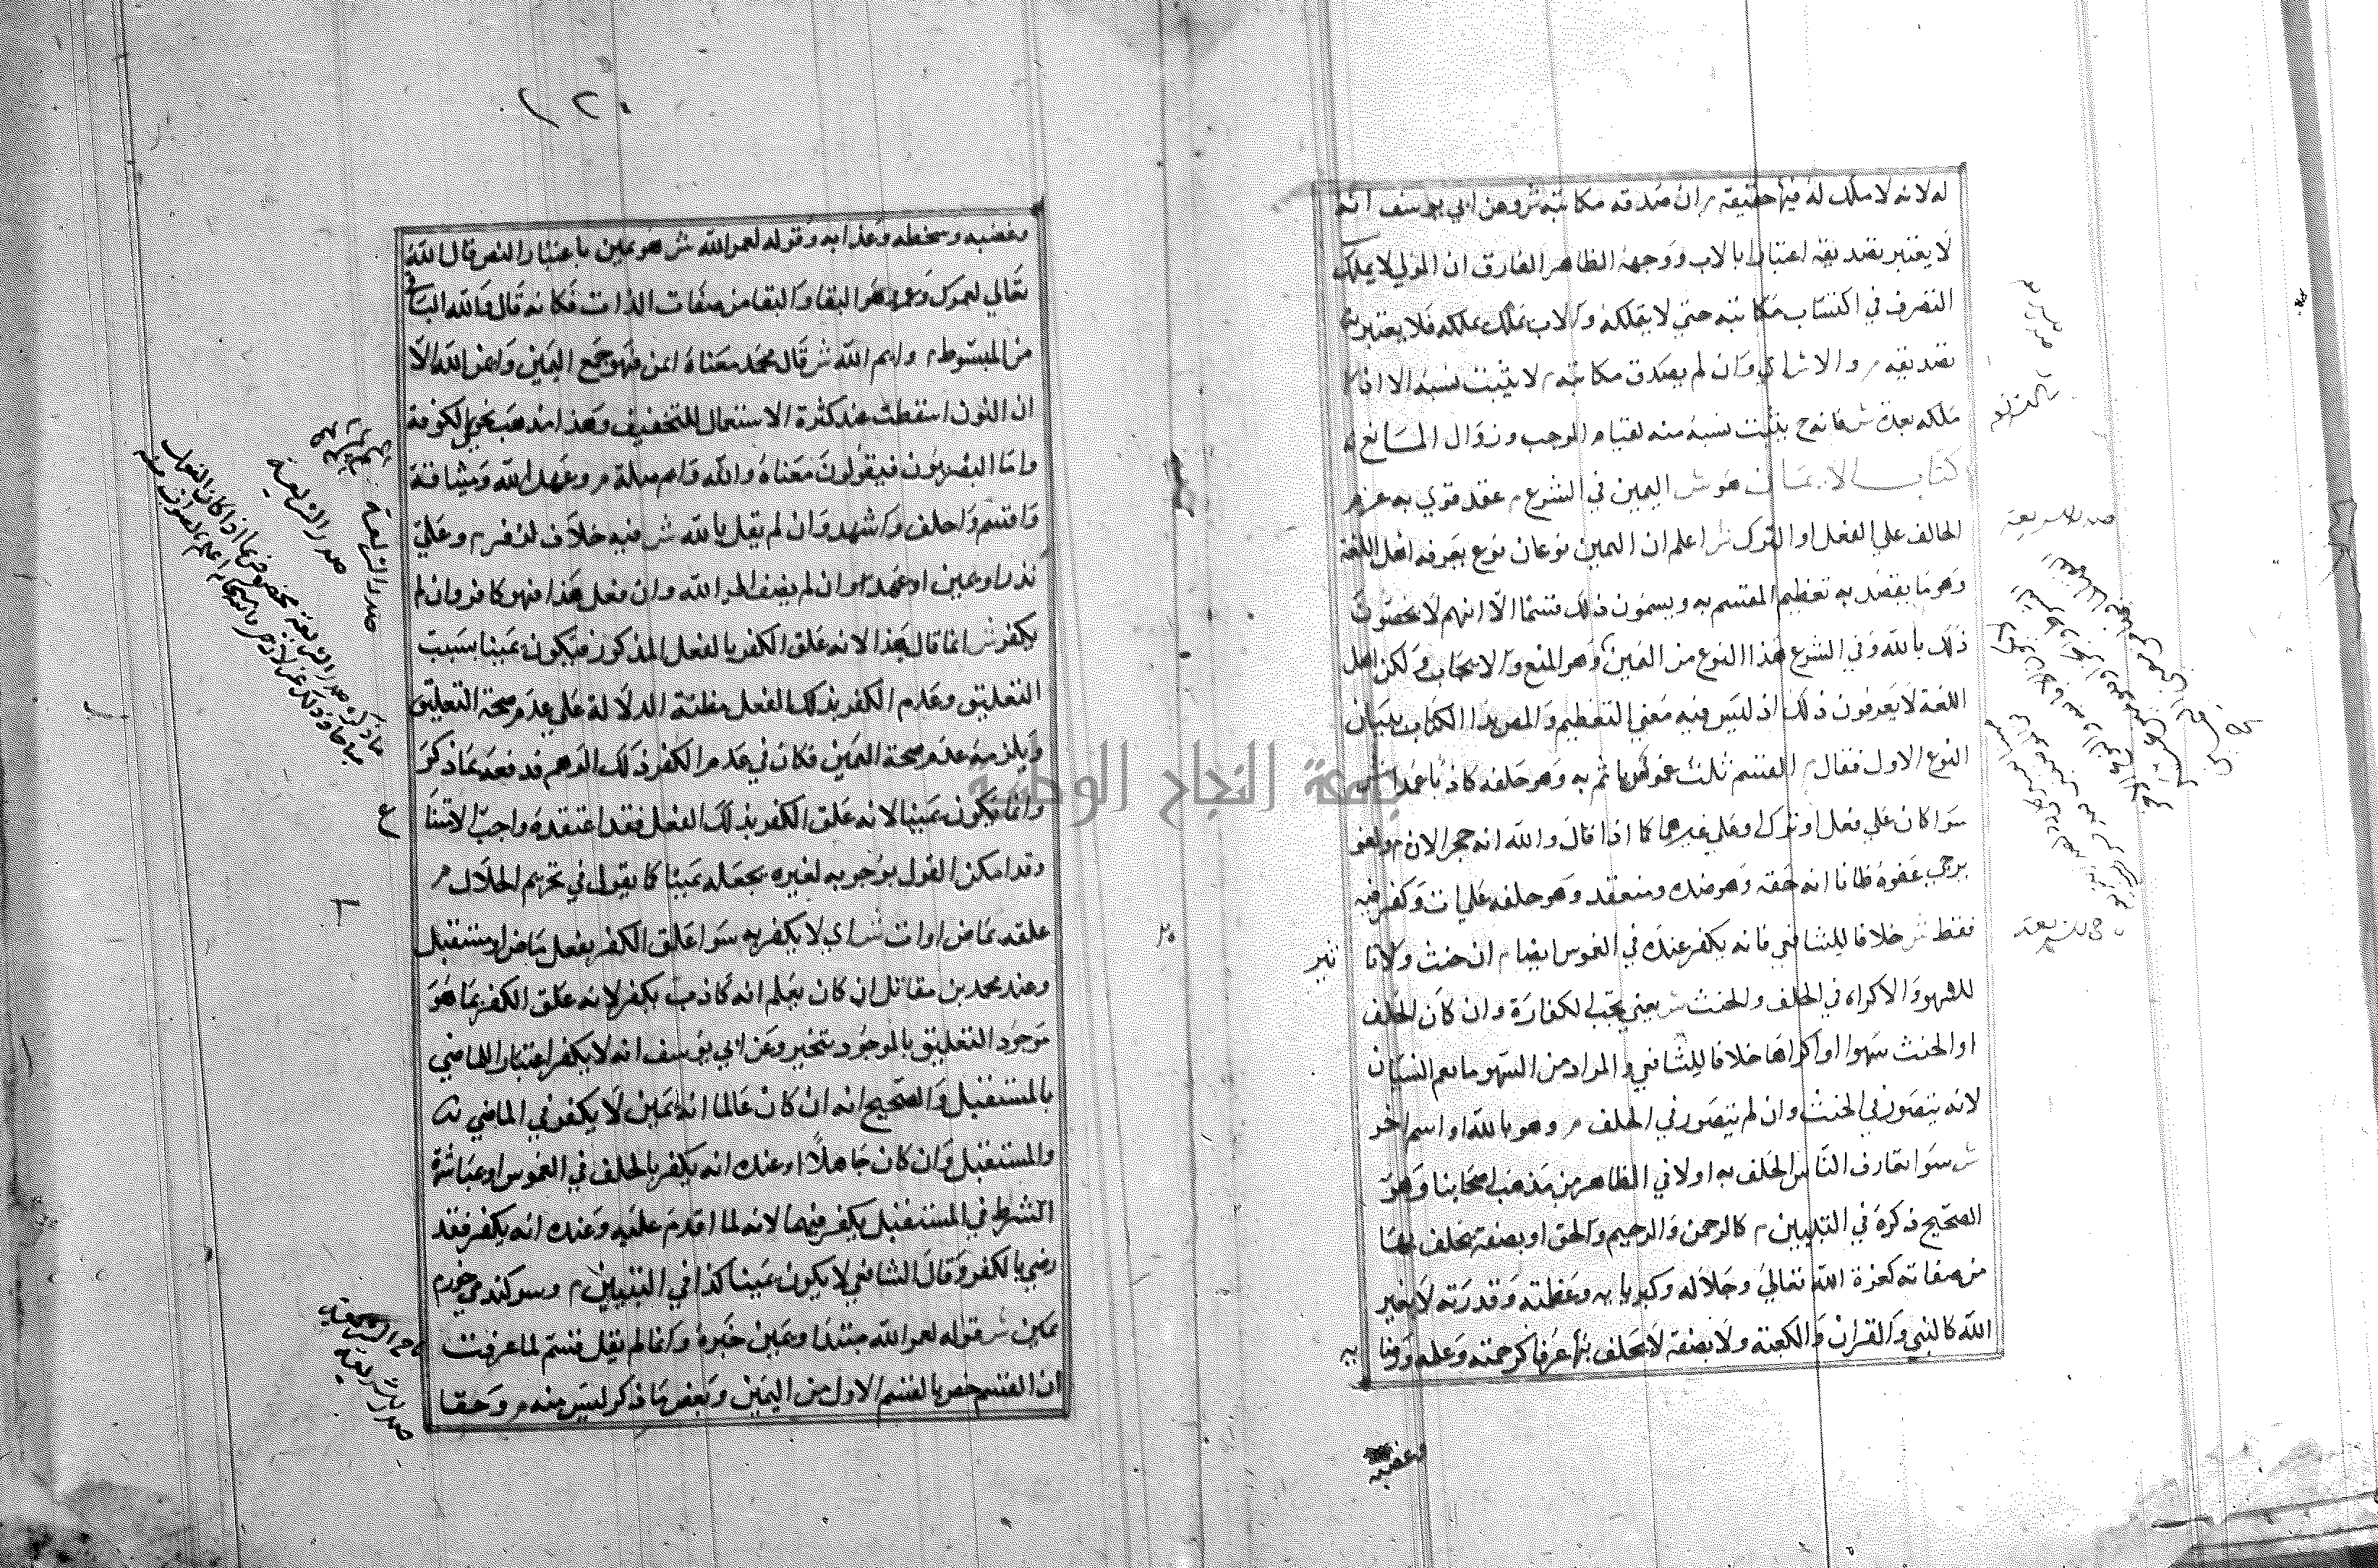 له لانه لا ملك له فيها حقيقة م ان صدقه مكاتبه ش وعن ابي يوسف انه
لا يعتبر تصديقه اعتبارا بالاب ووجه الظاهر الفارق ان المولي لا يملك
التصرف في اكتساب مكاتبه حتي لا يتملكه والاب تملك تملكه فلا يعتبر
تصديقه م والا ش اي وان لم يصدق مكاتبه م لا يثبت نسبه الا اذا
ملكه بعده ش فانه ح يثبت نسبه منه لقيام الموجب وزوال المانع
كتاب الايمان هو ش اليمين في الشرع م عقد قوي به عزم
الحالف علي الفعل او الترك ش اعلم ان اليمين نوعان نوع يعرفه اهل اللغة
وهو ما يقصد به تعظيم المقسم به ويسمون ذلك قسما الا انهم لا يخصون
ذلك بالله وفي الشرع هذا النوع من اليمين وهو المنع والايجاب ولكن اهل
اللغة لا يعرفون ذلك اذ ليس فيه معني التعظيم والمص بدا الكتاب ببيان
النوع الاول فقال م القسم ثلث غموس ياثم به وهو حلفه كاذبا عمدا ش
سوا كان علي فعل او ترك او علي غيرهما كما اذا قال والله انه حجر الان م ولغو
يرجي عفوه ظانا انه حقه وهو ضده ومنعقد وهو حلفه علي ات وكفر فيه
فقط ش خلافا للشافعي فانه يكفر عنده في الغموس ايضا م ان حنث ولا تا
ثير
للسهو والاكراه في الحلف والحنث ش يعني يجب الكفارة وان كان الحلف
او الحنث سهوا او اكراها خلافا للشافعي والمراد من السهو ما يعم النسيان
لانه يتصور في الحنث وان لم يتصور في الحلف م وهو بالله او اسم اخر
ش سوا تعارف الناس الحلف به اولا في الظاهر من مذهب اصحابنا وهو
الصحيح ذكره في التبيين م كالرحمن والرحيم والحق او بصفة يحلف بها
من صفاته كعزة الله تعالي وجلاله وكبريايه وعظمته وقدرته لا بغير
الله كالنبي والقران والكعبة ولا بصفة لا يحلف بها عرفا كرحمته وعلمه ورضا
يه
وغضبه
صدر الشريعة
١٢٠
وغضبه وسخطه وعذابه وقوله لعمر الله ش هو يمين باعتبار النص قال الله
تعالي لعمرك وعمر هو البقا والبقا من صفات الذات فكانه قال والله الباقي
من المبسوط م وايم الله ش قال محمد معناه ايمن فهو جمع اليمين وايمن الله الا
ان النون اسقطت عند كثرة الاستعمال للتخفيف وهذا مذهب نحوي الكوفة
واما البصريون فيقولون معناه والله وايم صلة م وعهد الله وميثاقه
واقسم واحلف واشهد وان لم يقل بالله ش فيه خلاف لزفر م وعلي
نذر او يمين او عهد وان لم يضف الي الله وان فعل كذا فهو كافر وان لم
يكفر ش انما قال هذا لانه علق الكفر بالفعل المذكور فيكون يمينا بسبب
التعليق وعدم الكفر بذلك الفعل مظنة الدلالة علي عدم صحة التعليق
ويلزمه عدم صحة اليمين فكان في عدم الكفر ذلك الوهم فدفعه بما ذكر
وانما يكون يمينا لانه علق الكفر بذلك الفعل فقد اعتقده واجب الامتنا
ع
وقد امكن القول بوجوبه لغيره بجعله يمينا كما يقول في تحريم الحلال م
علقه بماض او ات ش اي لا يكفر به سوا علق الكفر بفعل ماض او مستقبل
وعند محمد بن مقاتل ان كان يعلم انه كاذب يكفر لانه علق الكفر بما هو
موجود التعليق بالموجود تنجيز وعن ابي يوسف انه لا يكفر اعتبارا للماضي
بالمستقبل والصحيح انه ان كان عالما انه يمين لا يكفر في الماضي
والمستقبل وان كان جاهلا او عنده انه يكفر بالحلف في الغموس او عباشرة
الشرط في المستقبل يكفر فيهما لانه لما اقدم عليه وعنده انه يكفر فقد
رضي بالكفر وقال الشافعي لا يكون يمينا كذا في التبيين م وسوكند مي خورم
يمين ش قوله لعمر الله مبتدا ويمين خبره وانما لم يقل قسم لما عرفت
ان القسم خص بالقسم الاول من اليمين وبعض ما ذكر ليس منه م وحقا
صدر الشريعة
صدر الشريعة
جامعة النجاح الوطنية